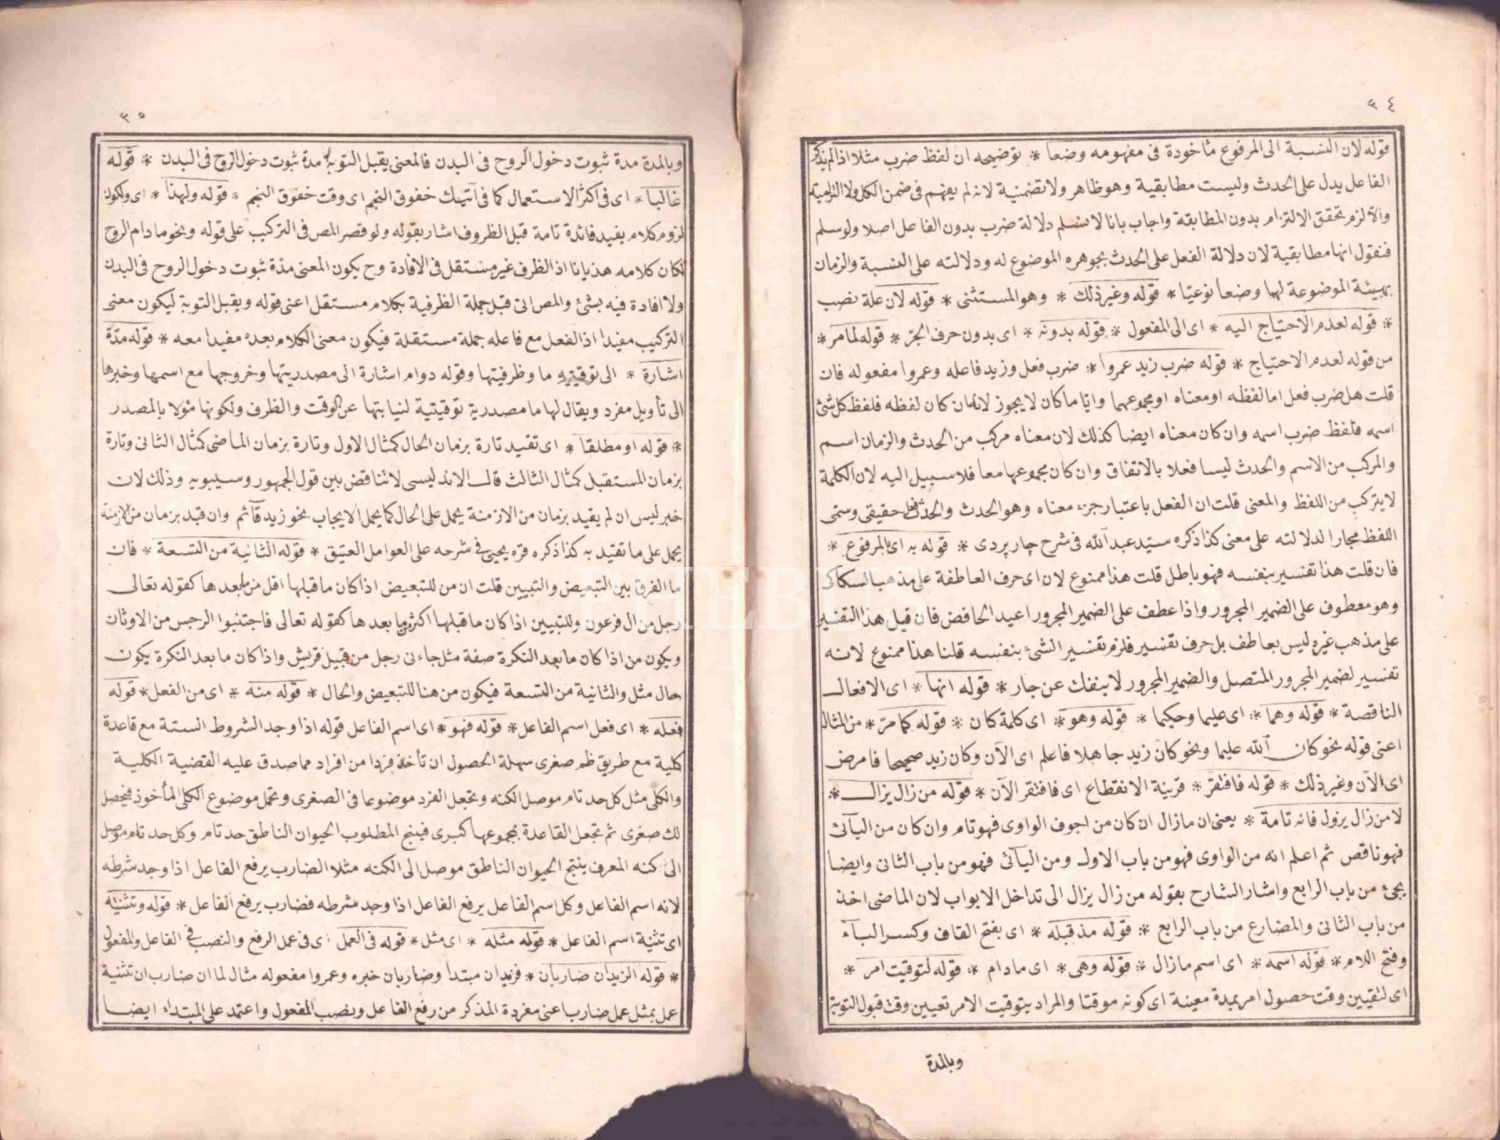 ٣٤
قوله لان النسبة الى المرفوع مأخودة فى مفهومه وضعا * توضيحه ان لفظ ضرب مثلا اذا لم يذكر
الفاعل يدل على الحدث وليست مطابقية وهو ظاهر ولا تضمنية لانه لم يفهم فى ضمن الكل ولا التزامية
والا لزم تحقق الالتزام بدون المطابقة واجاب بانا لا نسلم دلالة ضرب بدون الفاعل اصلا ولو سلم
فنقول انها مطابقية لان دلالة الفعل على الحدث بجوهره الموضوع له ودلالته على النسبة والزمان
بهيئة الموضوعة لها وضعا نوعيا * قوله وغير ذلك * وهو المستثنى * قوله لان علة نصب
* قوله لعدم الاحتياج اليه * اى الى المفعول * قوله بدونه * اى بدون حرف الجر * قوله لما مر *
من قوله لعدم الاحتياج * قوله ضرب زيد عمروا * ضرب فعل وزيد فاعله وعمروا مفعوله فان
قلت هل ضرب فعل اما لفظه او معناه او مجموعهما وايا ما كان لا يجوز لانه ان كان لفظه فلفظ كل شئ
اسمه فلفظ ضرب اسمه وان كان معناه ايضا كذلك لان معناه مركب من الحدث والزمان اسم
والمركب من الاسم والحدث ليسا فعلا بالاتفاق وان كان مجموعهما معا فلا سبيل اليه لان الكلمة
لا يتركب من اللفظ والمعنى قلت ان الفعل باعتبار جزء معناه وهو الحدث والحدث فعل حقيقى وسمى
اللفظ مجازا لدلالته على معنى كذا ذكره سيد عبد الله فى شرح چاربردى * قوله به اى بالمرفوع *
فان قلت هذا تفسير بنفسه فهو باطل قلت هذا ممنوع لان اى حرف العاطفة على مذهب السكاكى
وهو معطوف على الضمير المجرور واذا عطف على الضمير المجرور اعيد الخافض فان قيل هذا التفسير
على مذهب غيره ليس بعاطف بل حرف تفسير فلزم تفسير الشئ بنفسه قلنا هذا ممنوع لانه
تفسير لضمير المجرور المتصل والضمير المجرور لا ينفك عن جار * قوله انها * اى الافعال
الناقصة * قوله وهما * اى عليما وحكيما * قوله وهو * اى كلمة كان * قوله كما مر * من المثال
اعنى قوله نحو كان الله عليما ونحو كان زيد جاهلا فاعلم اى الآن وكان زيد صحيحا فامرض
اى الآن وغير ذلك * قوله فافتقر * قرينة الانقطاع اى فافتقر الآن * قوله من زال يزال *
لا من زال يزول فانه تامة * يعنى ان مازال ان كان من اجوف الواوى فهو تام وان كان من اليائى
فهو ناقص ثم اعلم انه من الواوى فهو من باب الاول ومن اليائى فهو من باب الثانى وايضا
يجئ من باب الرابع واشار الشارح بقوله من زال يزال الى تداخل الابواب لان الماضى اخذ
من باب الثانى والمضارع من باب الرابع * قوله مذ قبله * اى بفتح القاف وكسر الباء
وفتح اللام * قوله اسمه * اى اسم مازال * قوله وهى * اى مادام * قوله لتوقيت امر *
اى لتعيين وقت حصول امر بمدة معينة اى كونه موقتا والمراد بتوقيت الامر تعيين وقت قبول التوبة
وبالمدة
٣٥
وبالمدة مدة ثبوت دخول الروح فى البدن فالمعنى يقبل التوبة مدة ثبوت دخول الروح فى البدن * قوله
غالبا * اى فى اكثر الاستعمال كما فى اتيتك خفوق النجم اى وقت خفوق النجم * قوله ولهذا * اى ولكون
لزوم كلام يفيد فائدة تامة قبل الظروف اشار بقوله ولو قصر المص فى التركيب على قوله ونحو مادام الروح
لكان كلامه هذيانا اذ الظرف غير مستقل فى الافادة وح يكون المعنى مدة ثبوت دخول الروح فى البدن
ولا افادة فيه بشئ والمص اتى قبل جملة الظرفية بكلام مستقل اعنى قوله ويقبل التوبة ليكون معنى
التركيب مفيدا اذ الفعل مع فاعله جملة مستقلة فيكون معنى الكلام بعده مفيدا معه * قوله مدة
اشارة * الى توقيتية ما وظرفيتها وقوله دوام اشارة الى مصدريتها وخروجها مع اسمها وخبرها
الى تأويل مفرد ويقال لها ما مصدرية توقيتية لنيابتها عن الوقت والظرف ولكونها مؤلا بالمصدر
* قوله او مطلقا * اى تقيد تارة بزمان الحال كمثال الاول وتارة بزمان الماضى كمثال الثانى وتارة
بزمان المستقبل كمثال الثالث قال الاندلسى لا تناقض بين قول الجمهور وسيبويه وذلك لان
خبر ليس ان لم يقيد بزمان من الازمنة يحمل على الحال كما يحمل الايجاب نحو زيد قائم وان قيد بزمان من الازمنة
يحمل على ما تقيد به كذا ذكره قره يحيى فى شرحه على العوامل العتيق * قوله الثانية من التسعة * فان
ما الفرق بين التبعيض والتبيين قلت ان من للتبعيض اذا كان ما قبلها اقل من ما بعدها كقوله تعالى
رجل من ال فرعون وللتبيين اذا كان ما قبلها اكثر مما بعدها كقوله تعالى فاجتنبوا الرجس من الاوثان
ويكون من اذا كان ما بعد النكرة صفة مثل جاءنى رجل من قبيل قريش واذا كان ما بعد النكرة يكون
حال مثل والثانية من التسعة فيكون من هنا للتبعيض والحال * قوله منه * اى من الفعل * قوله
فعله * اى فعل اسم الفاعل * قوله فهو * اى اسم الفاعل قوله اذا وجد الشروط الستة مع قاعدة
كلية مع طريق ظم صغرى سهلة الحصول ان تأخذ فردا من افراد مما صدق عليه القضية الكلية
والكلى مثل كل حد تام موصل الكنه وتجعل الفرد موضوعا فى الصغرى وتحمل موضوع الكلى المأخوذ فيحصل
لك صغرى ثم تجعل القاعدة بمجموعها كبرى فينتج المطلوب الحيوان الناطق حد تام وكل حد تام موصل
الى كنه المعرف ينتج الحيوان الناطق موصل الى الكنه مثلا الضارب يرفع الفاعل اذا وجد شرطه
لانه اسم الفاعل وكل اسم الفاعل يرفع الفاعل اذا وجد شرطه فضارب يرفع الفاعل * قوله وتثنيته
اى تثنية اسم الفاعل * قوله مثله * اى مثل * قوله فى العمل اى فى عمل الرفع والنصب فى الفاعل والمفعول
* قوله الزيدان ضاربان * فزيدان مبتدا وضاربان خبره وعمروا مفعوله مثال لما ان ضاربان تثنية
عمل بمثل عمل ضارب اعنى مفردة المذكر من رفع الفاعل ونصب المفعول واعتمد على المبتداء ايضا